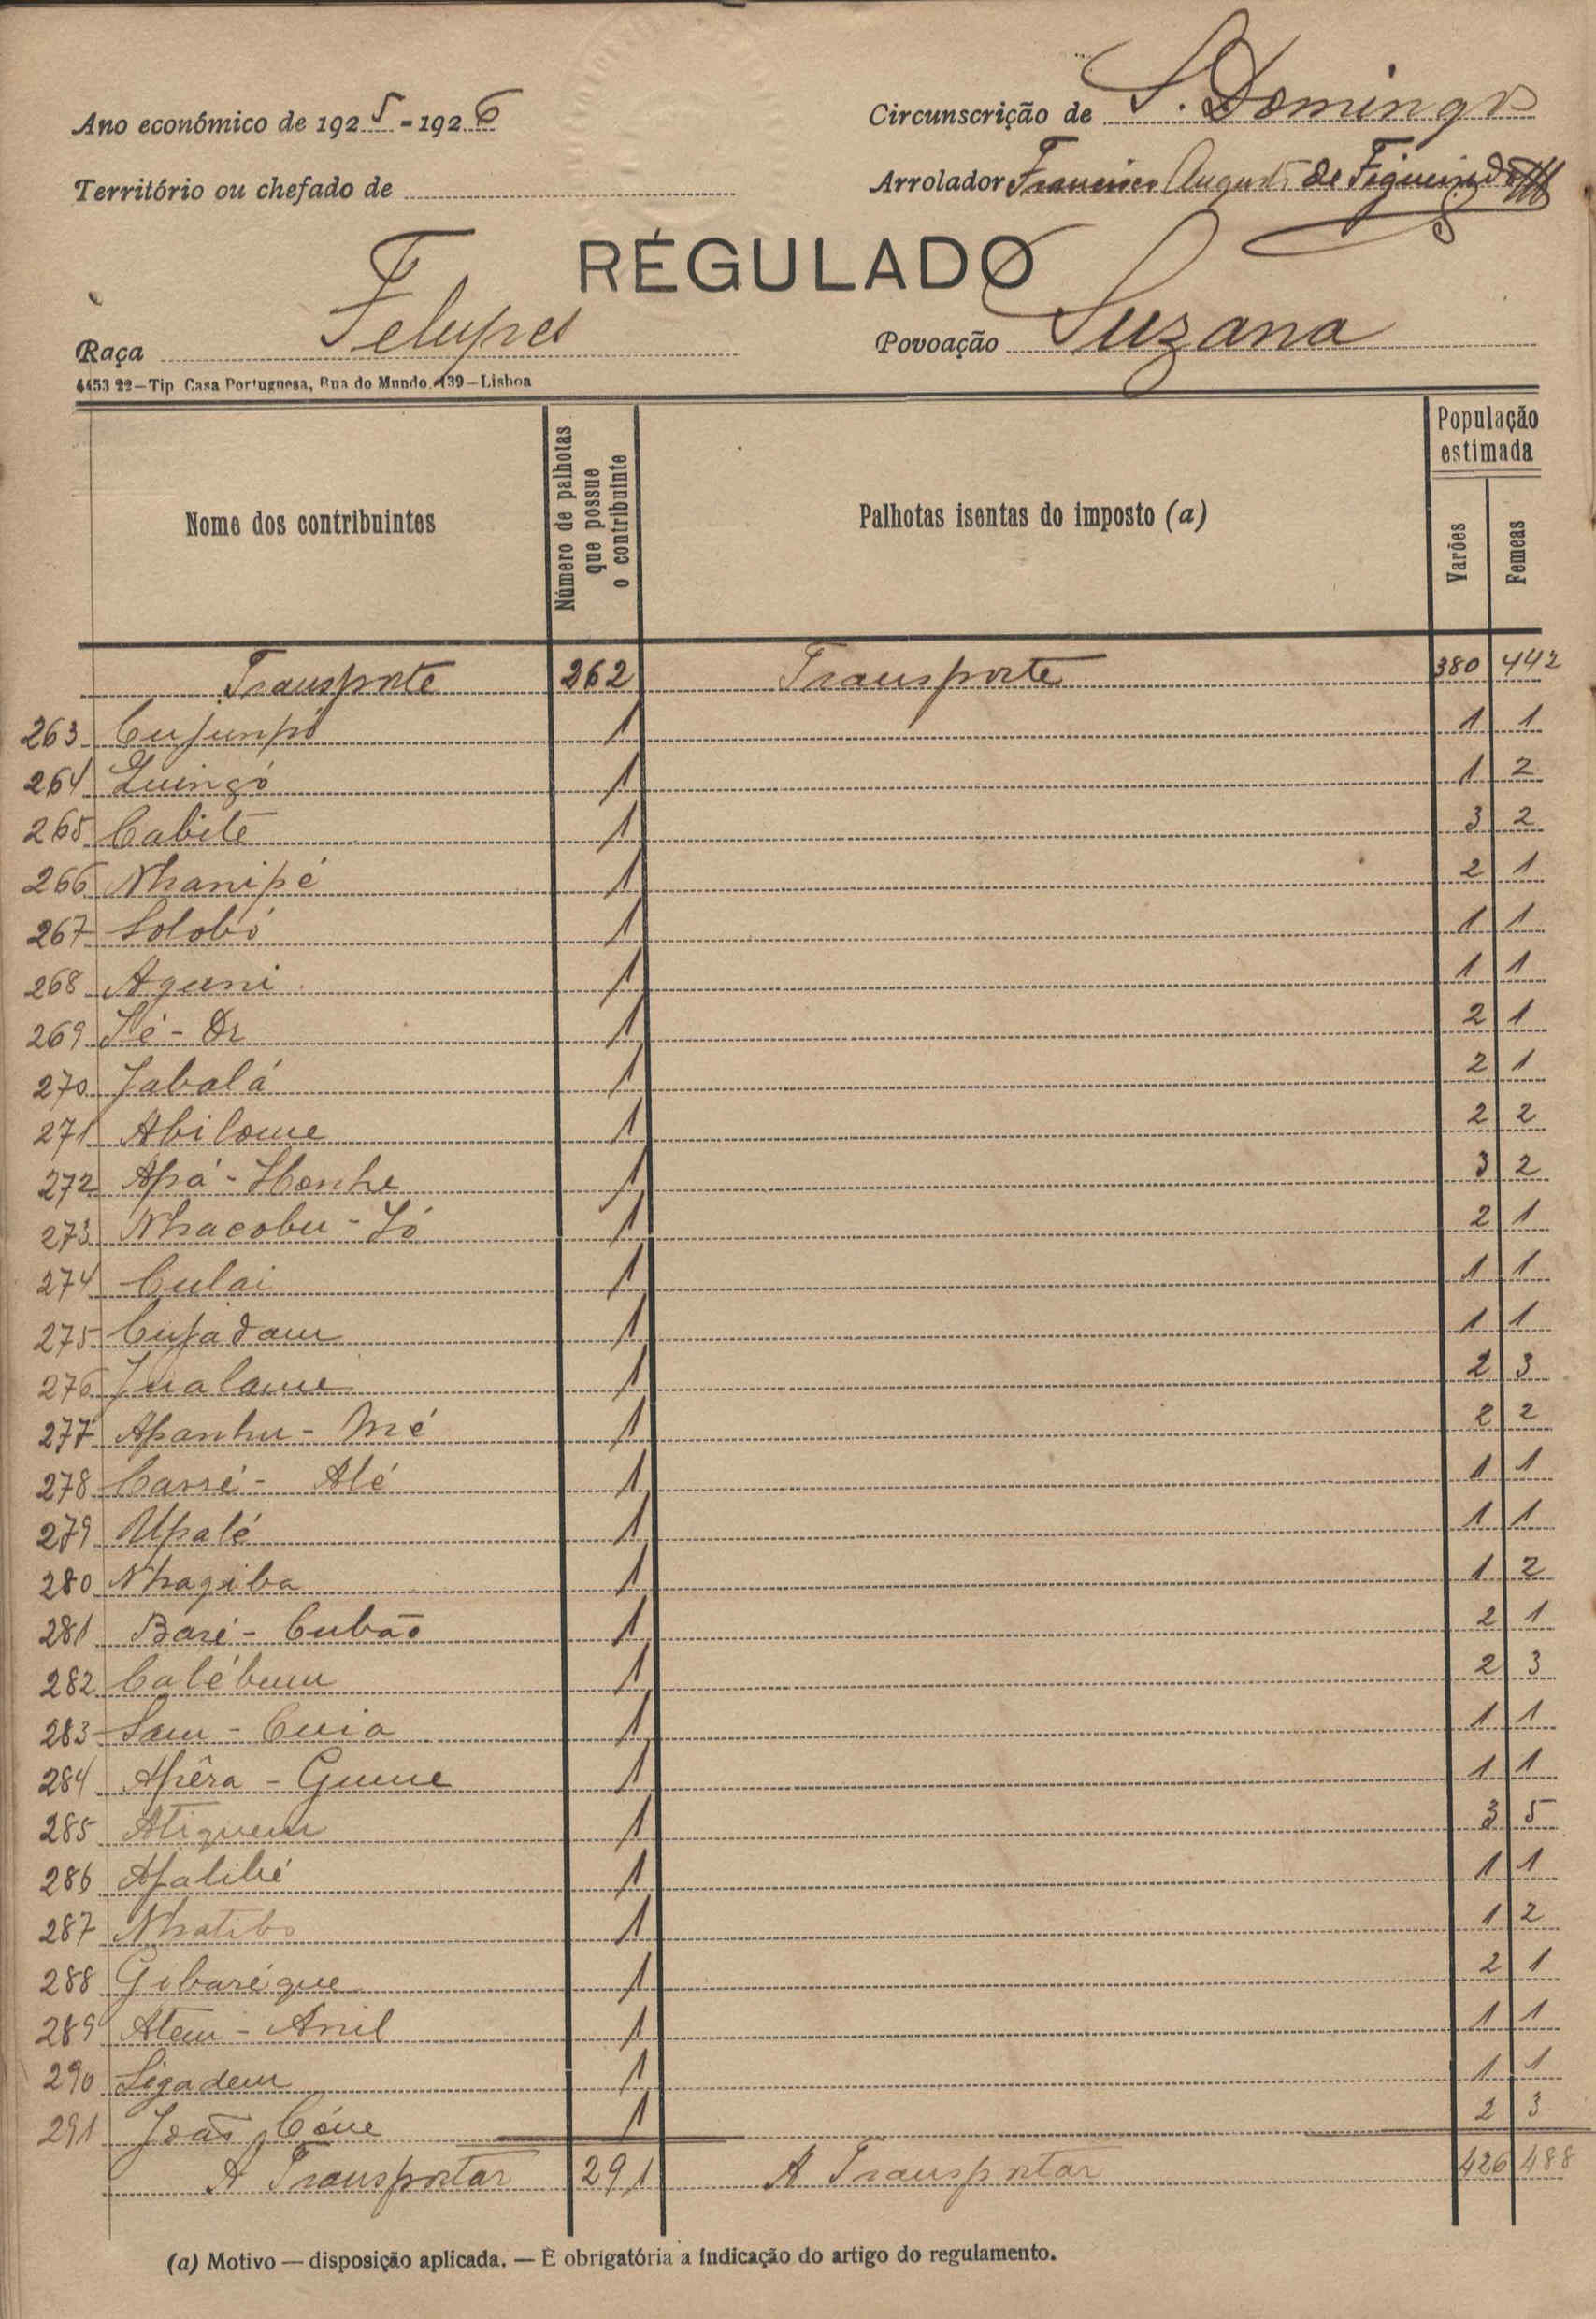 Ano económico de 1925-1926 Circunscrição de S. Domingos
Território ou chefado de Arrolador Francisco Augusto de Figueiredo
RÉGULADO
Raça Felupes Povoação Suzana
4453 22—Tip Casa Portuguesa, Rua do Mundo, 139—Lisboa
Nome dos contribuintes Número de palhotas que possue o contribuinte Palhotas isentas do imposto (a) População estimada Varões Femeas
Transporte 262 Transporte 380 442
263 Cujunpó 1 1 1
264 Luingó 1 1 2
265 Cabite 1 3 2
266 Nhanipé 1 2 1
267 Solobó 1 1 1
268 Aguni 1 1 1
269 1 2 1
270 Jabalá 1 2 1
271 Abilome 1 2 2
272 Apá - 1 3 2
273 Nhacobu - Ló 1 2 1
274 Culai 1 1 1
275 Cujadam 1 1 1
276 Jualame 1 2 3
277 Apanhu - Mé 1 2 2
278 Carré - Alé 1 1 1
279 Upalé 1 1 1
280 Nhagiba 1 1 2
281 Baré - Cubão 1 2 1
282 Calébum 1 2 3
283 Sam - Cuia 1 1 1
284 Apêra - Gueue 1 1 1
285 Atiquem 1 3 5
286 Apalibé 1 1 1
287 Nhatibo 1 1 2
288 Gibaréque 1 2 1
289 Atem - Anil 1 1 1
290 Sigadem 1 1 1
291 João Cóue 1 2 3
A Transportar 291 A Transportar 426 488
(a) Motivo — disposição aplicada. — É obrigatória a indicação do artigo do regulamento.